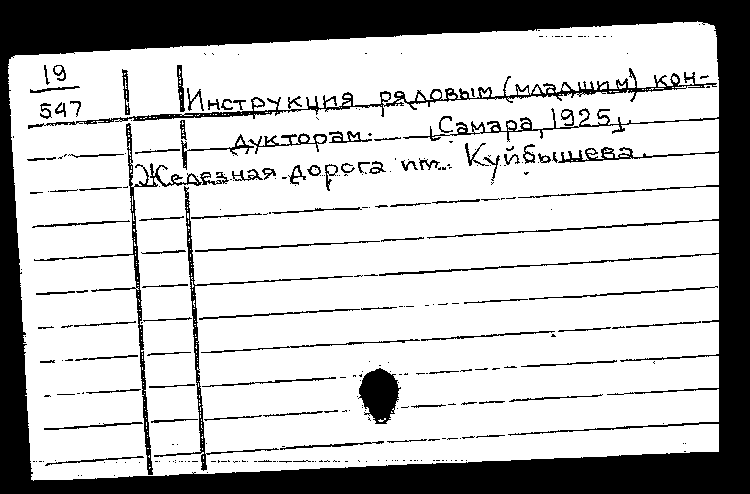 19
547
Инструкция рядовым (младшим) кон-
дукторам. [Самара, 1925].
Железная дорога им. Куйбышева.